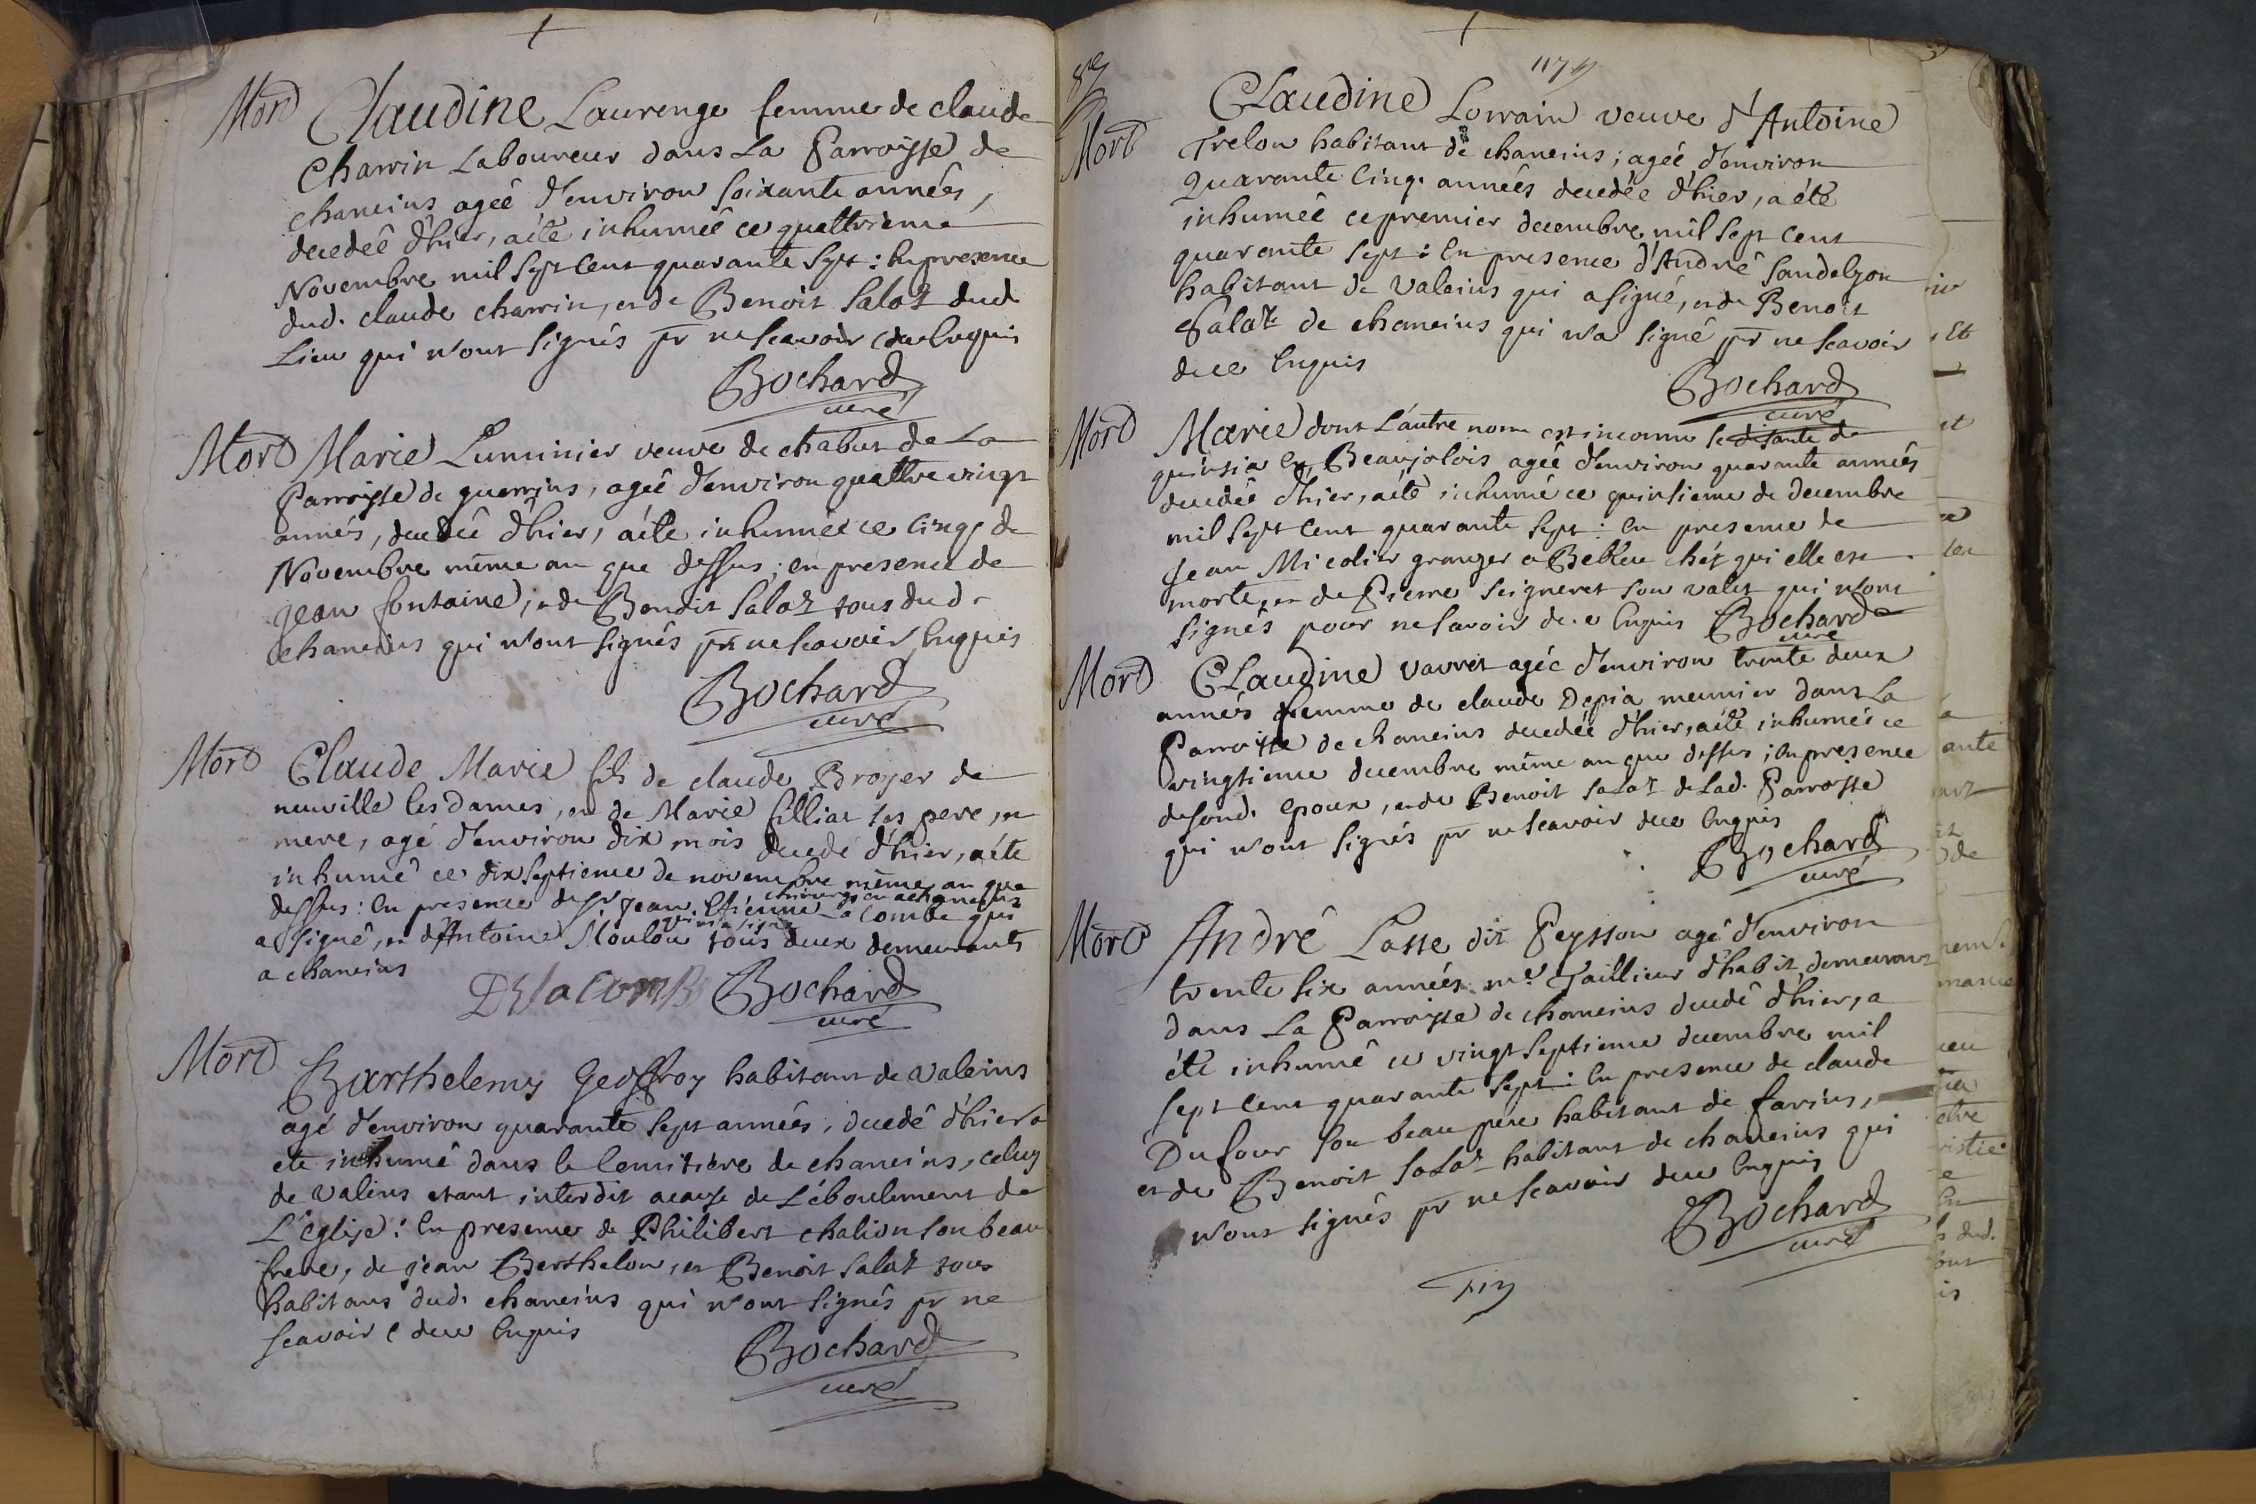 Mort Claudine Laurenge femme de claude
Charrin Laboureur dans La Parroisse de
chaneins agée d'environ soixante années,
decedeé d'hier, a éte inhumeé ce quattrieme
Novembre mil sept cent quarante sept : En presence
dud. claude charrin, et de Benoit Salaz dud.
Lieu qui n'ont signés pr ne scavoir de ce Enquis
Bochard
curé
Mort Marie Luminier veuve de chabut de La
Parroisse de guerreins, agée d'environ quattre vingt
années, decedeé d'hier, a éte inhumeé ce cinq de
Novembre même an que dessus ; en presence de
Jean fontaine, et de Benoit Salaz tous dud.
chaneins qui n'ont signés pr ne scavoir Enquis
Bochard
curé
Mort Claude Marie fils de claude Broyer de
neuville les Dames, et de Marie filliat ses pere et
mere, agé d'environ dix mois decedé d'hier, a éte
inhumé ce dix septieme de novembre même an que
dessus : En presence de sr Jean Etienne La Combe qui
a signé, et d'Antoine Moulou tous deux demeurants
a chaneins
DelacomB Bochard
curé
Mort Barthelemy Geoffroy habitant de Valeins
agé d'environ quarante sept années, decedé d'hier a
ete inhumé dans le Cemitiere de chaneins, celuy
de Valeins etant interdit acause de L'éboulement de
L'Eglise : En presence de Philibert chalion son beau
frere, de jean Berthelon, et Benoit Salaz tous
habitans dud. chaneins qui n'ont signés pr ne
scavoir de ce Enquis
Bochard
curé
1747
Mort Claudine Lorrain veuve d'Antoine
Trelon habitant de chaneins ; agée d'environ
Quarante Cinq. années decedée d'hier, a été
inhumée ce premier decembre mil sept cent
quarante sept : En presence d'André Sandelyon
habitant de Valeins qui a signé, et de Benoit
Salaz de chaneins qui n'a signé pr ne scavoir
de ce Enquis
Bochard
curé
Mort Marie dont L'autre nom est inconnu se disante de
quinsia En Beaujolois agée d'environ quarante années
decedée d'hier, a éte inhumé ce quinsieme de decembre
mil sept cent quarante sept : En presence de
Jean Micolier granger a Belleu chéz qui elle est
morte, et de Pierre Seigneret son valet qui n'ont
signés pour ne savoir de ce Enquis Bochard
curé
Mort Claudine vavret agée d'environ trente deux
années femme de claude Depia meunier dans La
Parroisse de chaneins decedée d'hier, a éte inhumée ce
vingtieme decembre même an que dessus ; En presence
de sond. epoux, et de Benoit Salaz de Lad. Parroisse
qui n'ont signés pr ne scavoir de ce Enquis
Bochard
curé
Mort André Lasse dit Peysson agé d'environ
trente six années me Taillieur d'habit demeurant
dans La Parroisse de chaneins decedé d'hier, a
éte inhumé ce vingt septieme decembre mil
sept cent quarante sept : En presence de claude
Dufour son beau pere habitant de farins,
et de Benoit Salaz habitant de chaneins qui
n'ont signés pr ne scavoir de ce Enquis
Bochard
curé
Fin